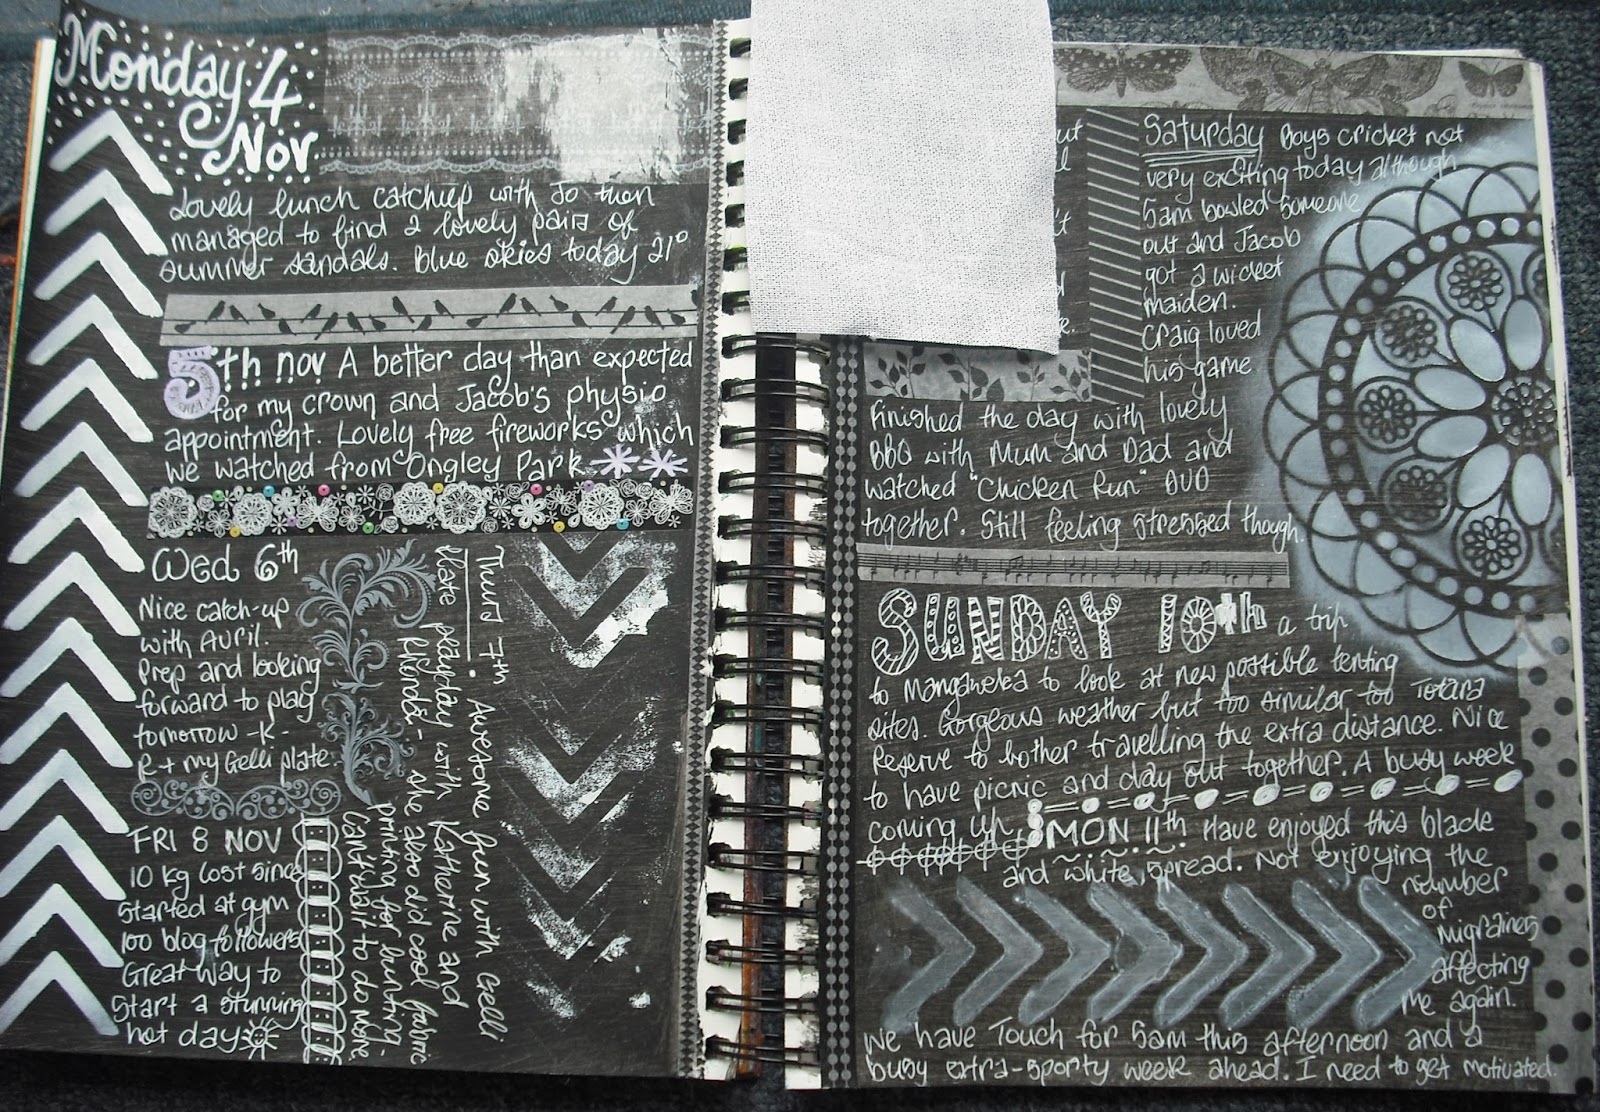 Monday 4
Nov
Lovely lunch catchup with Jo then
managed to find 2 lovely pairs of
summer sandals. Blue skies today 21°
5th nov A better day than expected
for my crown and Jacob's physio
appointment. Lovely free fireworks which
we watched from Ongley Park
Wed 6th
Nice catch-up
with Avril.
Prep and looking
forward to play
tomorrow -K-
R + my Gelli plate.
Thurs 7th Awesome fun with Gelli
Plate playday with Katherine and
- she also did cool fabric
printing for bunting-
can't wait to do more
FRI 8 NOV
10 kg lost since
started at gym
100 blog followers
Great way to
start a stunning
hot day
ut
't
e.
Saturday Boys cricket not
very exciting today although
Sam bowled someone
out and Jacob
got a wicket
maiden.
Craig loved
his game
Finished the day with lovely
BBQ with Mum and Dad and
watched "Chicken Run" DVD
together. Still feeling stressed though.
SUNDAY 10th a trip
to Mangaweka to look at new possible tenting
sites. Gorgeous weather but too similar to Totara
Reserve to bother travelling the extra distance. Nice
to have picnic and day out together. A busy week
coming up
MON. 11th Have enjoyed this black
and white spread. Not enjoying the
number
of
migraines
affecting
me again.
We have Touch for Sam this afternoon and a
busy extra-sporty week ahead. I need to get motivated.